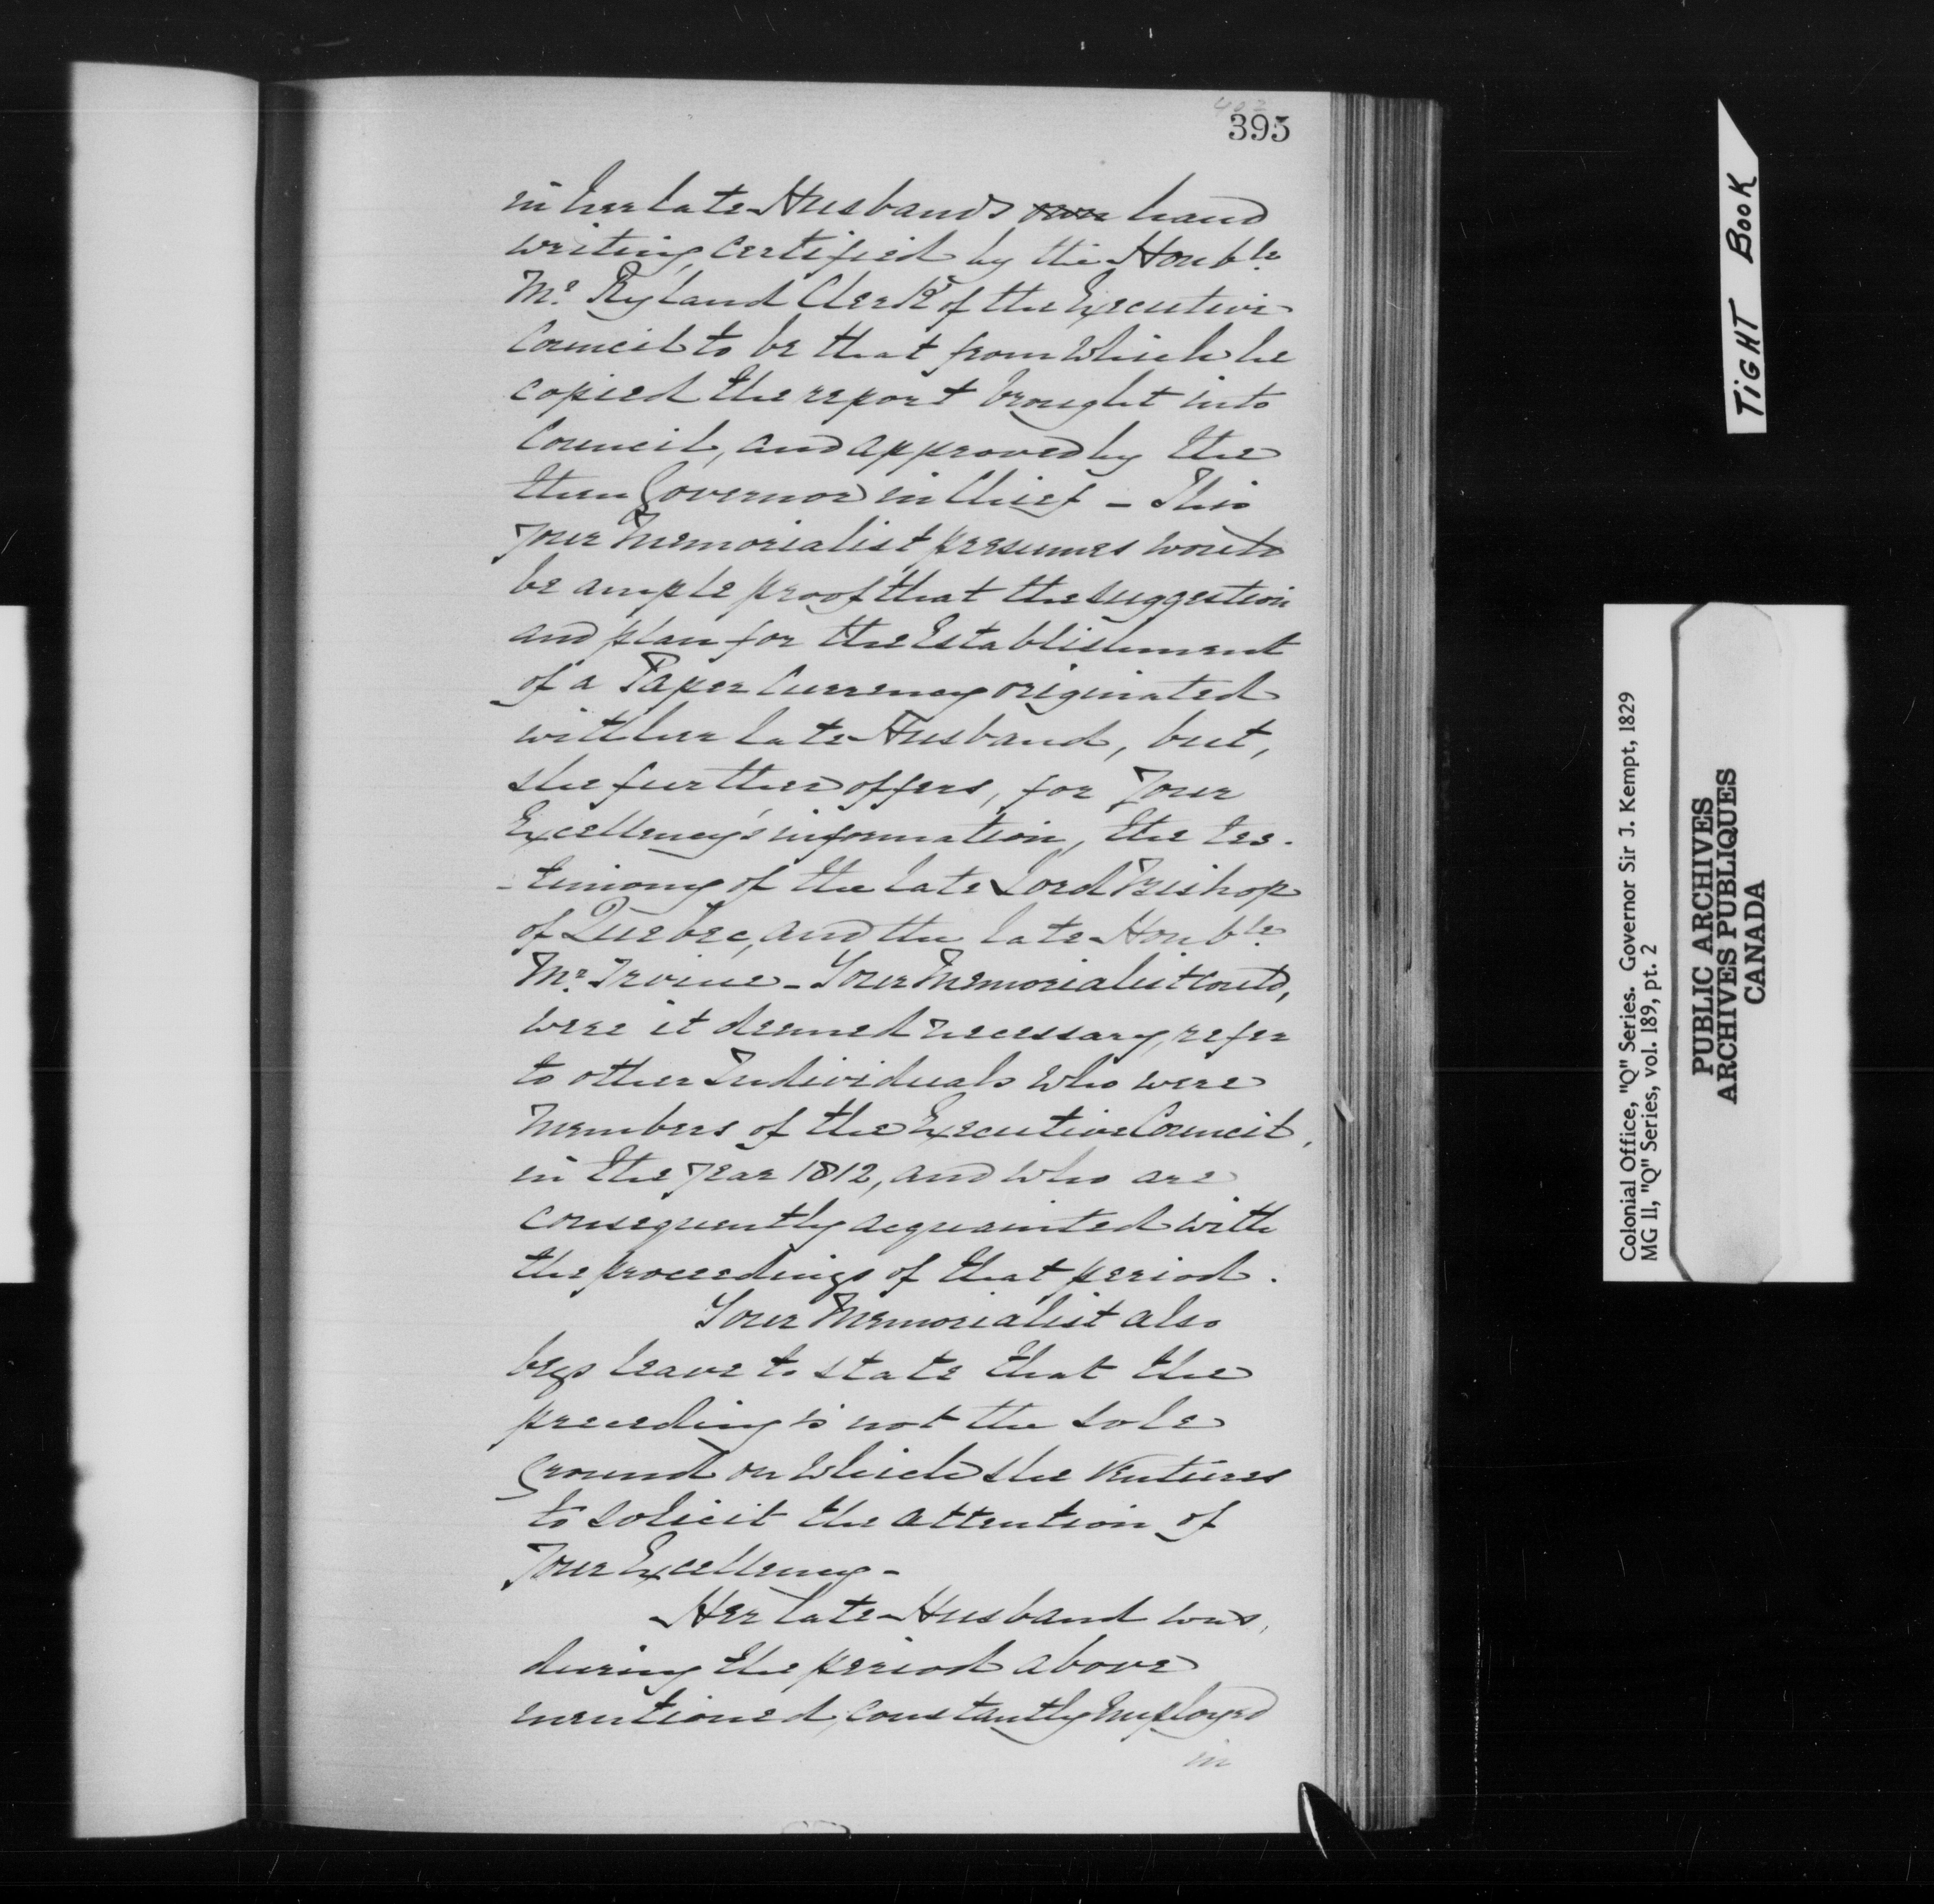 402
395
in her late Husbands own hand
writing, certified by the Honble
Mr Ryland Clerk of the Executive
Council to be that from which he
copied the report brought into
Council, and approved by the
then Governor in Chief - This
your Memorialist presumes would
be ample proof that the suggestion
and plan for the Establishment
of a Paper Currency originated
with her late Husband, but,
she further offers, for Your
Excellency's information, the tes-
-timony of the late Lord Bishop
of Quebec, and the late Honble
Mr Irvine - Your Memorialist could,
were it deemed necessary, refer
to other Individuals who were
Members of the Executive Council,
in the year 1812, and who are
consequently acquainted with
the proceedings of that period.
Your Memorialist also
begs leave to state that the
preceding is not the sole
Ground on which she ventures
to solicit the attention of
Your Excellency -
Her late Husband was,
during the period above
mentioned, constantly employed
in
TIGHT BOOK
Colonial Office, "Q" Series. Governor Sir J. Kempt, 1829
MG 11, "Q" Series, vol. 189, pt. 2
PUBLIC ARCHIVES
ARCHIVES PUBLIQUES
CANADA